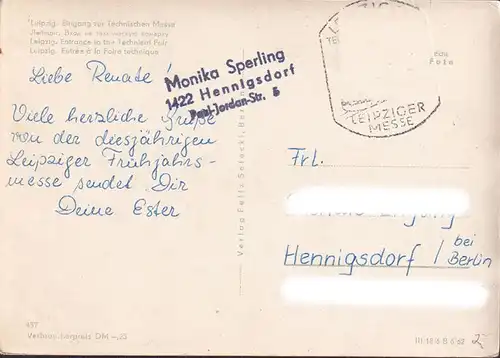 Leipzig. Eingang zur Technischen Messe
Leipzig. Entrance to the Technical Fair
Leipzig. Entrée à la Foire technique
Monika Sperling
1422 Hennigsdorf
Paul-Jordan-Str. 5
Liebe Renate!
Viele herzliche Grüße
von der diesjährigen
Leipziger Frühjahrs-
messe sendet Dir
Deine Ester
LEIPZIGER
MESSE
Foto
Frl.
Hennigsdorf / bei
Berlin
Verlag Felix Setecki, Berlin
457
DM -,23
III 18 6 B 6 62